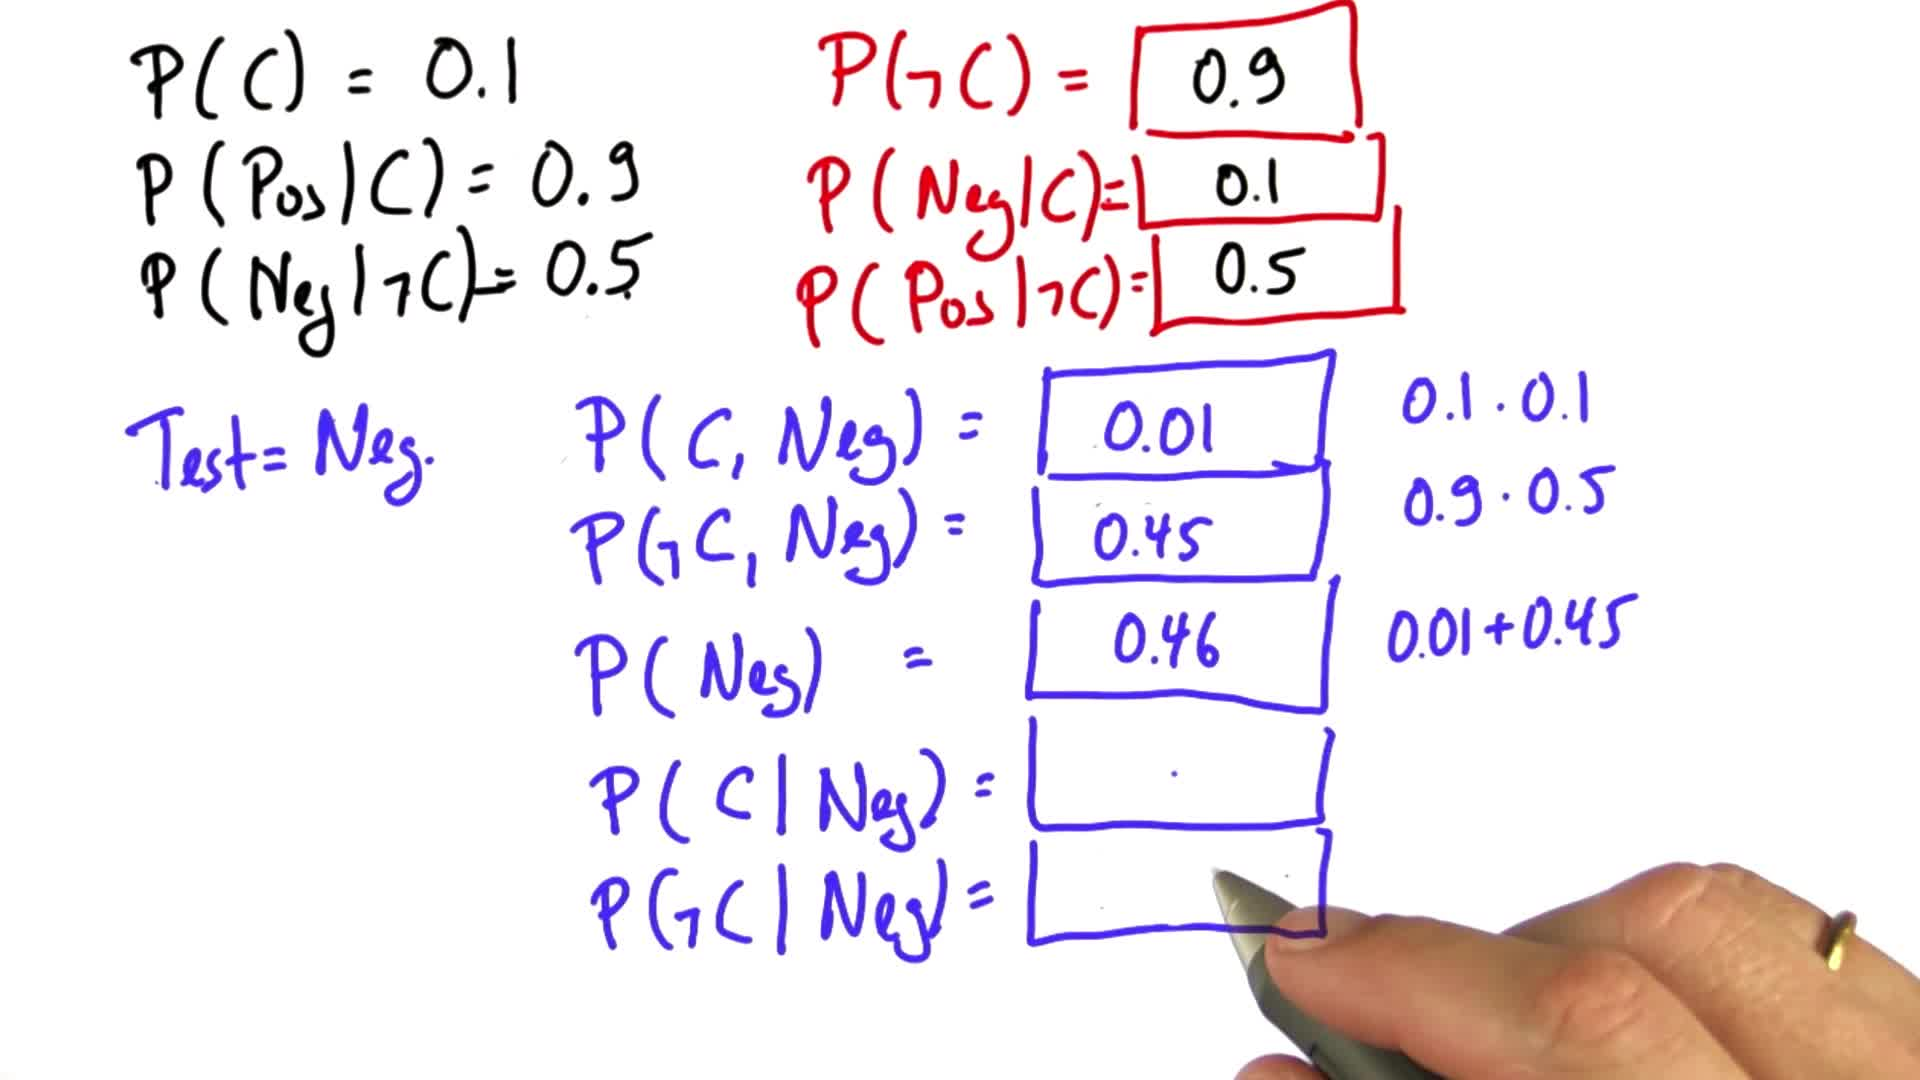 P(C) = 0.1
P(¬C) = 0.9
P(Pos|C) = 0.9
P(Neg|C) = 0.1
P(Neg|¬C) = 0.5
P(Pos|¬C) = 0.5
Test = Neg.
P(C, Neg) = 0.01 0.1 · 0.1
P(¬C, Neg) = 0.45 0.9 · 0.5
P(Neg) = 0.46 0.01 + 0.45
P(C|Neg) =
P(¬C|Neg) =